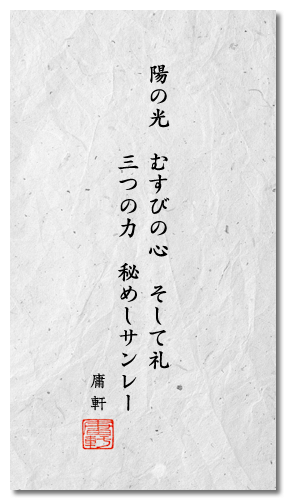 陽の光　むすびの心　そして礼
三つの力　秘めしサンレー
庸軒
庸軒